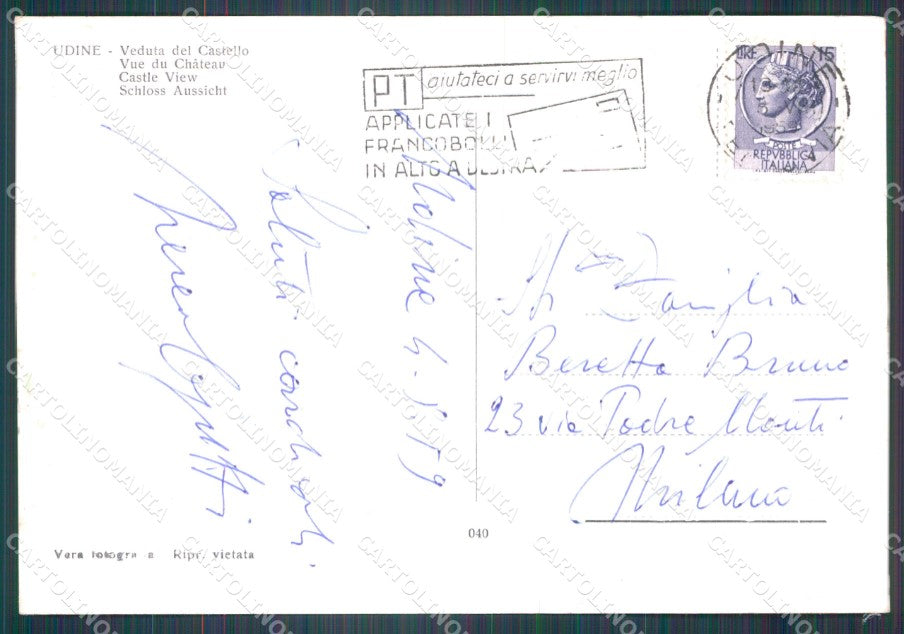 UDINE - Veduta del Castello
Vue du Château
Castle View
Schloss Aussicht
PT aiutateci a servirvi meglio
APPLICATE I
FRANCOBOLLI
IN ALTO A DESTRA
LIRE 15
POSTE
REPVBBLICA
ITALIANA
Udine 4.5.59
Saluti cordiali
Famiglia
Beretta Bruno
23 via Padre Monti
Milano
040
Vera fotogra a Ripr. vietata
CARTOLINOMANIA